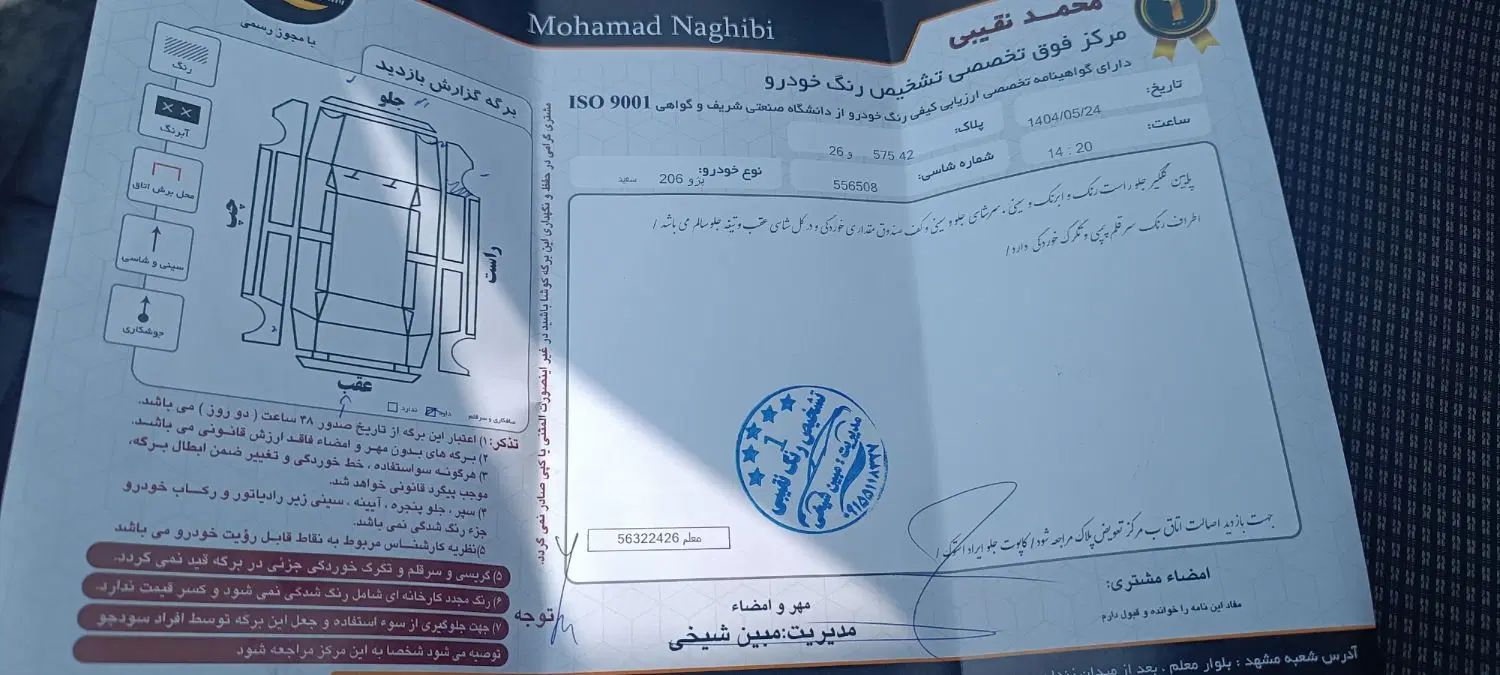 Mohamad Naghibi
محمد نقیبی
مرکز فوق تخصصی تشخیص رنگ خودرو
دارای گواهینامه تخصصی ارزیابی کیفی رنگ خودرو از دانشگاه صنعتی شریف و گواهی ISO 9001
تاریخ: 1404/05/24
پلاک: 42 575 و 26
ساعت: 14 : 20
شماره شاسی: 556508
نوع خودرو: پژو 206 سفید
پلیین گلگیر جلو راست رنگ و ابرنگ و سینی، سرشاسی جلو و سینی و کف صندوق مقداری خوردگی و در کل شاسی عقب و تیغه جلو سالم می باشد /
اطراف رنگ سر قلم پمپی و تکرک خوردگی دارد /
تشخیص رنگ نقیبی
1
مدیریت: مبین شیخی
معلم 56322426
جهت بازدید اصالت اتاق ب مرکز تعویض پلاک مراجعه شود / کاپوت جلو ایراد استوک /
امضاء مشتری:
مفاد این نامه را خوانده و قبول دارم
مهر و امضاء
مدیریت:مبین شیخی
آدرس شعبه مشهد : بلوار معلم ، بعد از میدان
با مجوز رسمی
برگه گزارش بازدید
رنگ
آبرنگ
محل برش اتاق
سینی و شاسی
جوشکاری
جلو
چپ
راست
عقب
صافکاری و سرقلم دارد ندارد
مشتری گرامی در حفظ و نگهداری این برگه کوشا باشید در غیر اینصورت المثنی یا کپی صادر نمی گردد.
تذکر: ۱) اعتبار این برگه از تاریخ صدور ۴۸ ساعت ( دو روز ) می باشد.
۲) برگه های بدون مهر و امضاء فاقد ارزش قانونی می باشد.
۳) هرگونه سواستفاده ، خط خوردگی و تغییر ضمن ابطال برگه،
موجب پیگرد قانونی خواهد شد.
۴) سپر ، جلو پنجره ، آیینه ، سینی زیر رادیاتور و رکاب خودرو
جزء رنگ شدگی نمی باشد.
۵) نظریه کارشناس مربوط به نقاط قابل رؤیت خودرو می باشد
توجه
۵) گریسی و سرقلم و تکرک خوردگی جزئی در برگه قید نمی گردد.
۶) رنگ مجدد کارخانه ای شامل رنگ شدگی نمی شود و کسر قیمت ندارد.
۷) جهت جلوگیری از سوء استفاده و جعل این برگه توسط افراد سودجو
توصیه می شود شخصا به این مرکز مراجعه شود